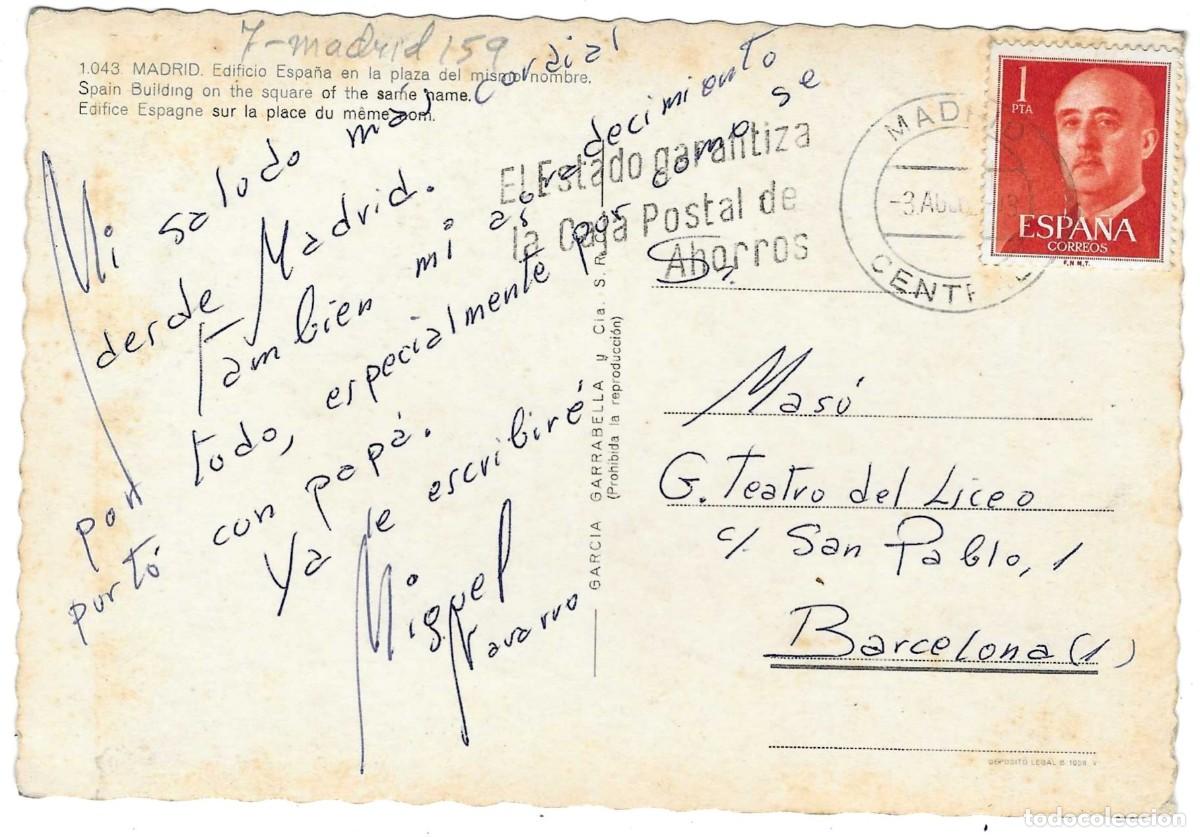 7-madrid 159
1.043 MADRID. Edificio España en la plaza del mismo nombre.
Spain Building on the square of the same name.
Edifice Espagne sur la place du même nom.
Mi saludo más cordial
desde Madrid.
También mi agradecimiento
por todo, especialmente por como se
portó con papá.
Ya le escribiré
Miguel
Navarro
El Estado garantiza
la Caja Postal de
Ahorros
MADRID
3 AGO
CENTRAL
1
PTA
ESPAÑA
CORREOS
F.N.M.T.
GARCIA GARRABELLA y Cia. S. R.
(Prohibida la reproducción)
Sr.
Masó
G. Teatro del Liceo
c/. San Pablo, 1
Barcelona (1)
DEPOSITO LEGAL B. 1958 V
todocoleccion